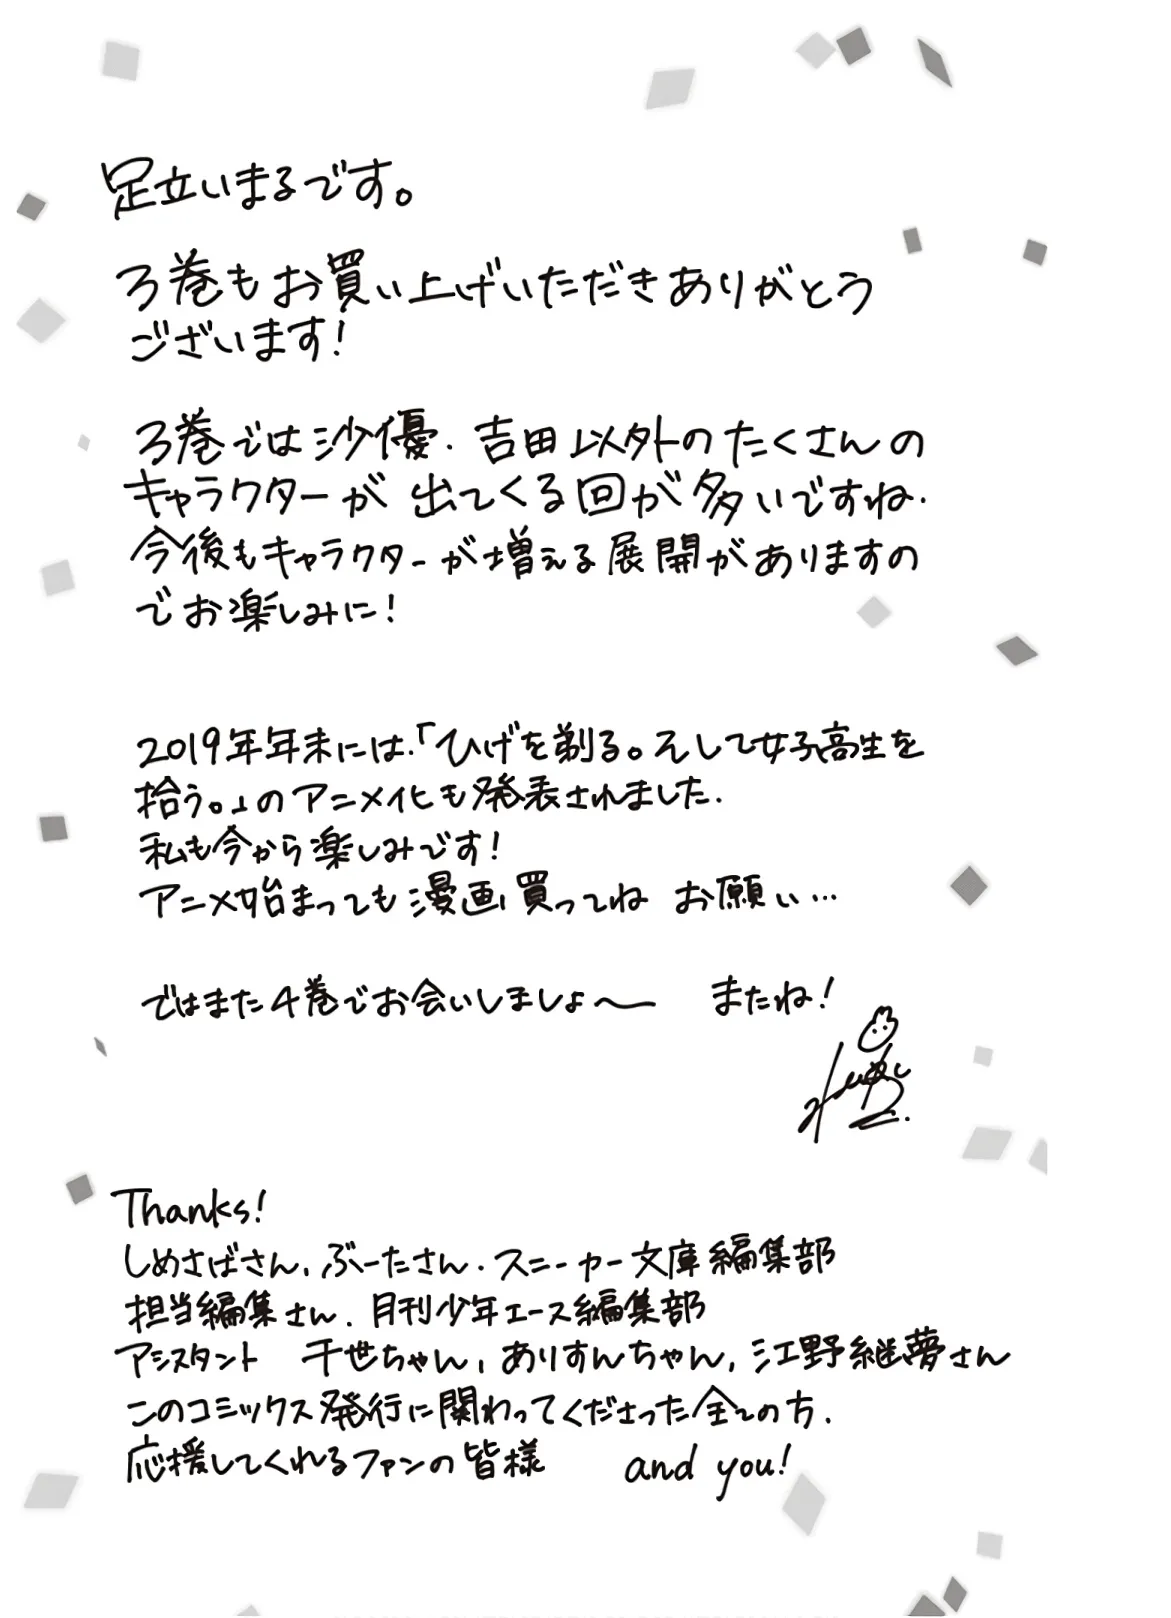 足立いまるです。
3巻もお買い上げいただきありがとう
ございます!
3巻では沙優、吉田以外のたくさんの
キャラクターが出てくる回が多いですね。
今後もキャラクターが増える展開がありますの
でお楽しみに!
2019年年末には、「ひげを剃る。そして女子高生を
拾う。」のアニメ化も発表されました。
私も今から楽しみです!
アニメ始まっても漫画買ってね お願い…
ではまた4巻でお会いしましょ〜 またね!
Thanks!
しめさばさん、ぶーたさん、スニーカー文庫編集部
担当編集さん、月刊少年エース編集部
アシスタント 千世ちゃん、ありすんちゃん、江野継夢さん
このコミックス発行に関わってくださった全ての方、
応援してくれるファンの皆様 and you!